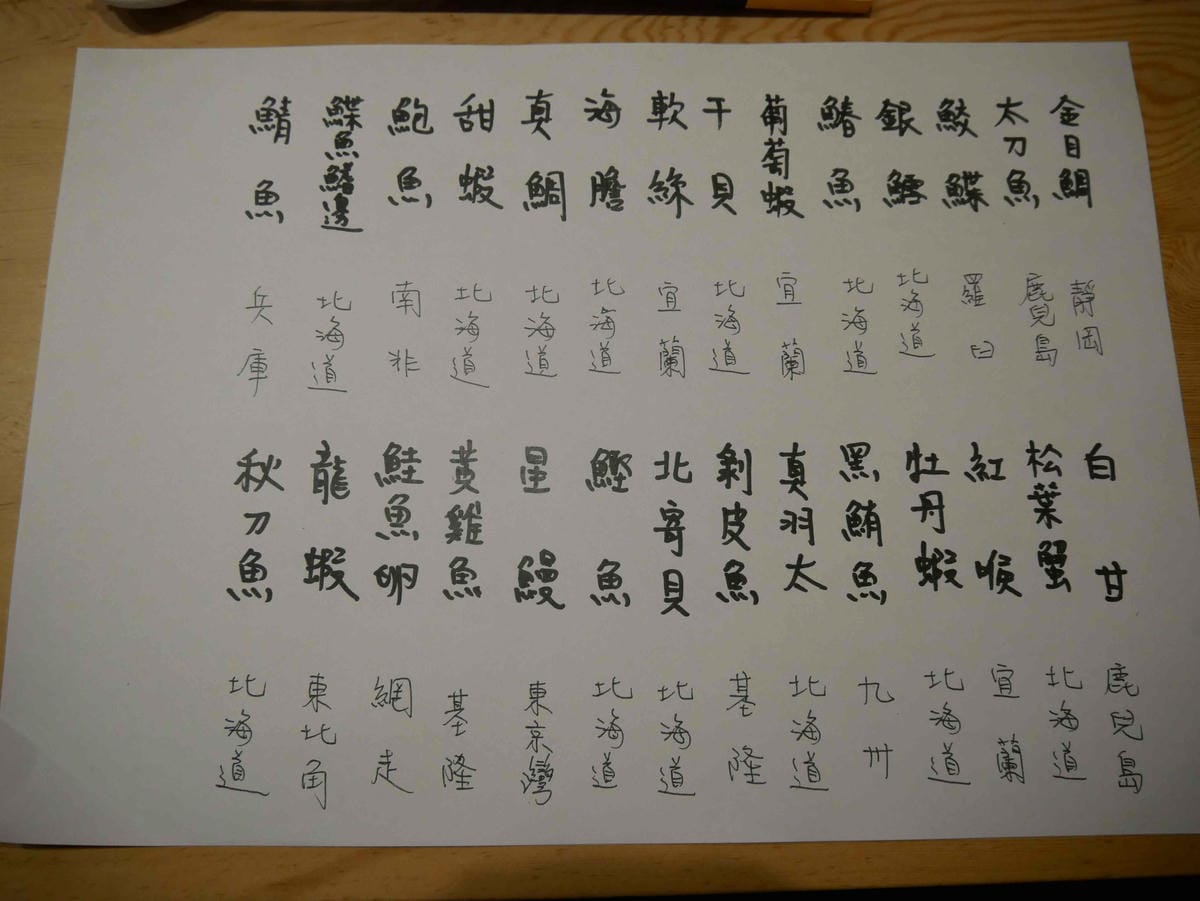 金目鯛
靜岡
太刀魚
鹿兒島
鮫鰈
羅臼
銀鱈
北海道
鰆魚
北海道
葡萄蝦
宜蘭
干貝
北海道
軟絲
宜蘭
海膽
北海道
真鯛
北海道
甜蝦
北海道
鮑魚
南非
鰈魚鰭邊
北海道
鯖魚
兵庫
白甘
鹿兒島
松葉蟹
北海道
紅喉
宜蘭
牡丹蝦
北海道
黑鮪魚
九州
真羽太
北海道
剝皮魚
基隆
北寄貝
北海道
鰹魚
北海道
星鰻
東京灣
黃雞魚
基隆
鮭魚卵
網走
龍蝦
東北角
秋刀魚
北海道